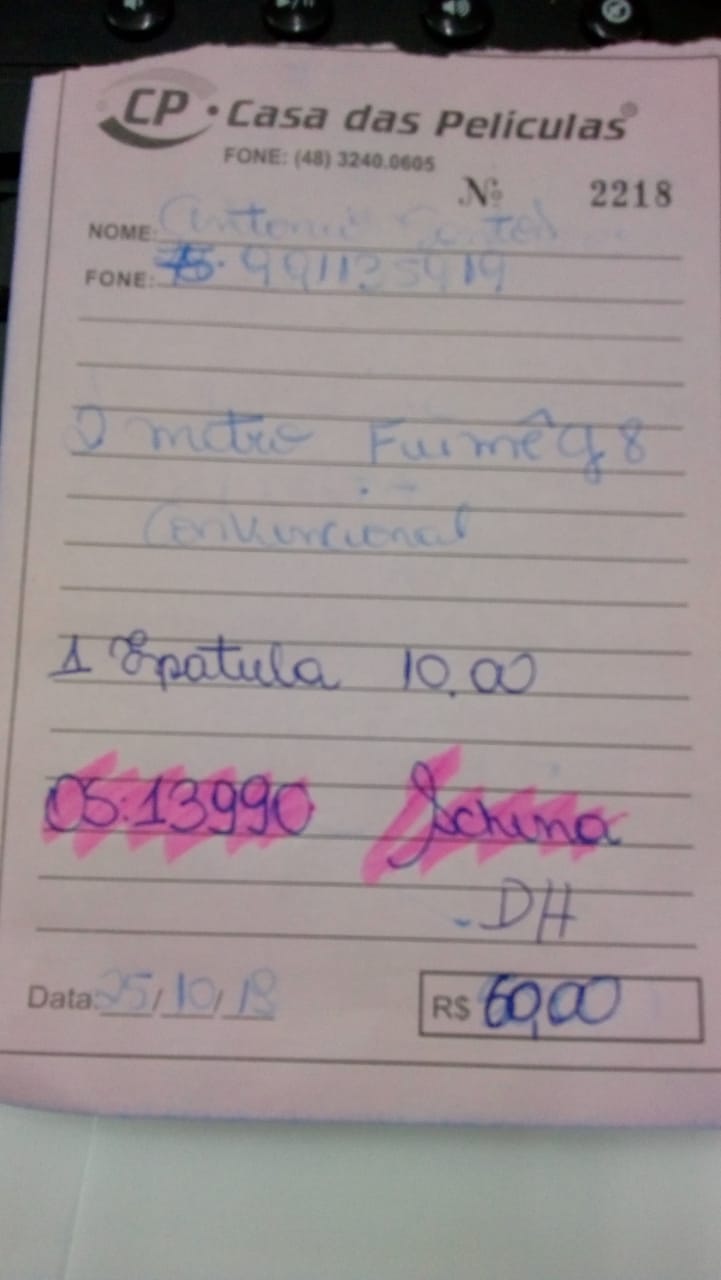 CP • Casa das Películas®
FONE: (48) 3240.0605
Nº 2218
NOME: Antonio
FONE: 991135919
metro Fumê g8
Convencional
1 Epatula 10,00
OS:13990 Jchina
.DH
Data 25/10/18
R$ 60,00